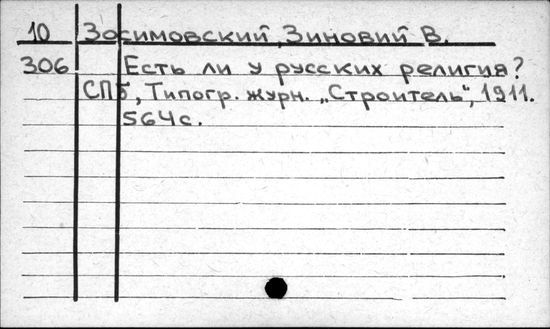 10 Зосимовский, Зиновий В.
306 Есть ли у русских религия?
СПб, Типогр. журн. „Строитель“, 1911.
564с.